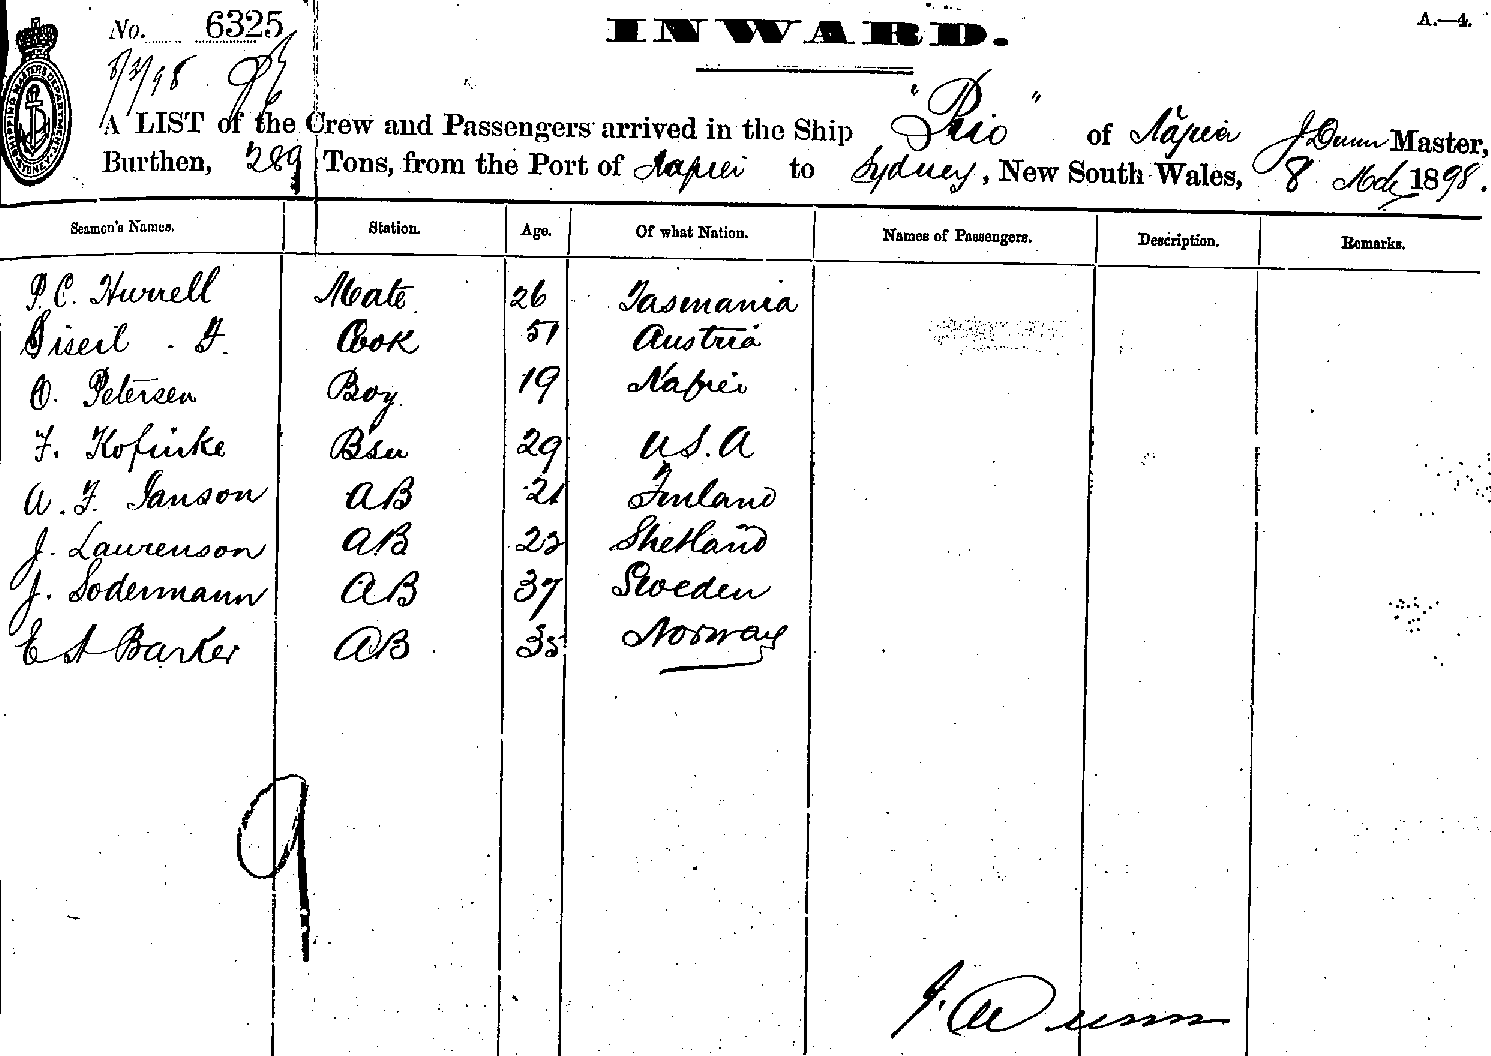 No. 6325
INWARD.
A.—4.
8/3/98
A LIST of the Crew and Passengers arrived in the Ship "Rio" of Napier J Dunn Master,
Burthen, 289 Tons, from the Port of Napier to Sydney, New South Wales, 8 Mch 1898.
Seamen's Names. Station. Age. Of what Nation. Names of Passengers. Description. Remarks.
P. C. Hurrell Mate 26 Tasmania
F. Cook 51 Austria
O. Petersen Boy 19 Napier
F. Kofinke Bsn 29 U.S.A
A. F. Janson AB 21 Finland
J. Laurenson AB 23 Shetland
J. Sodermann AB 37 Sweden
E A Barker AB 35 Norway
9
J. Dunn